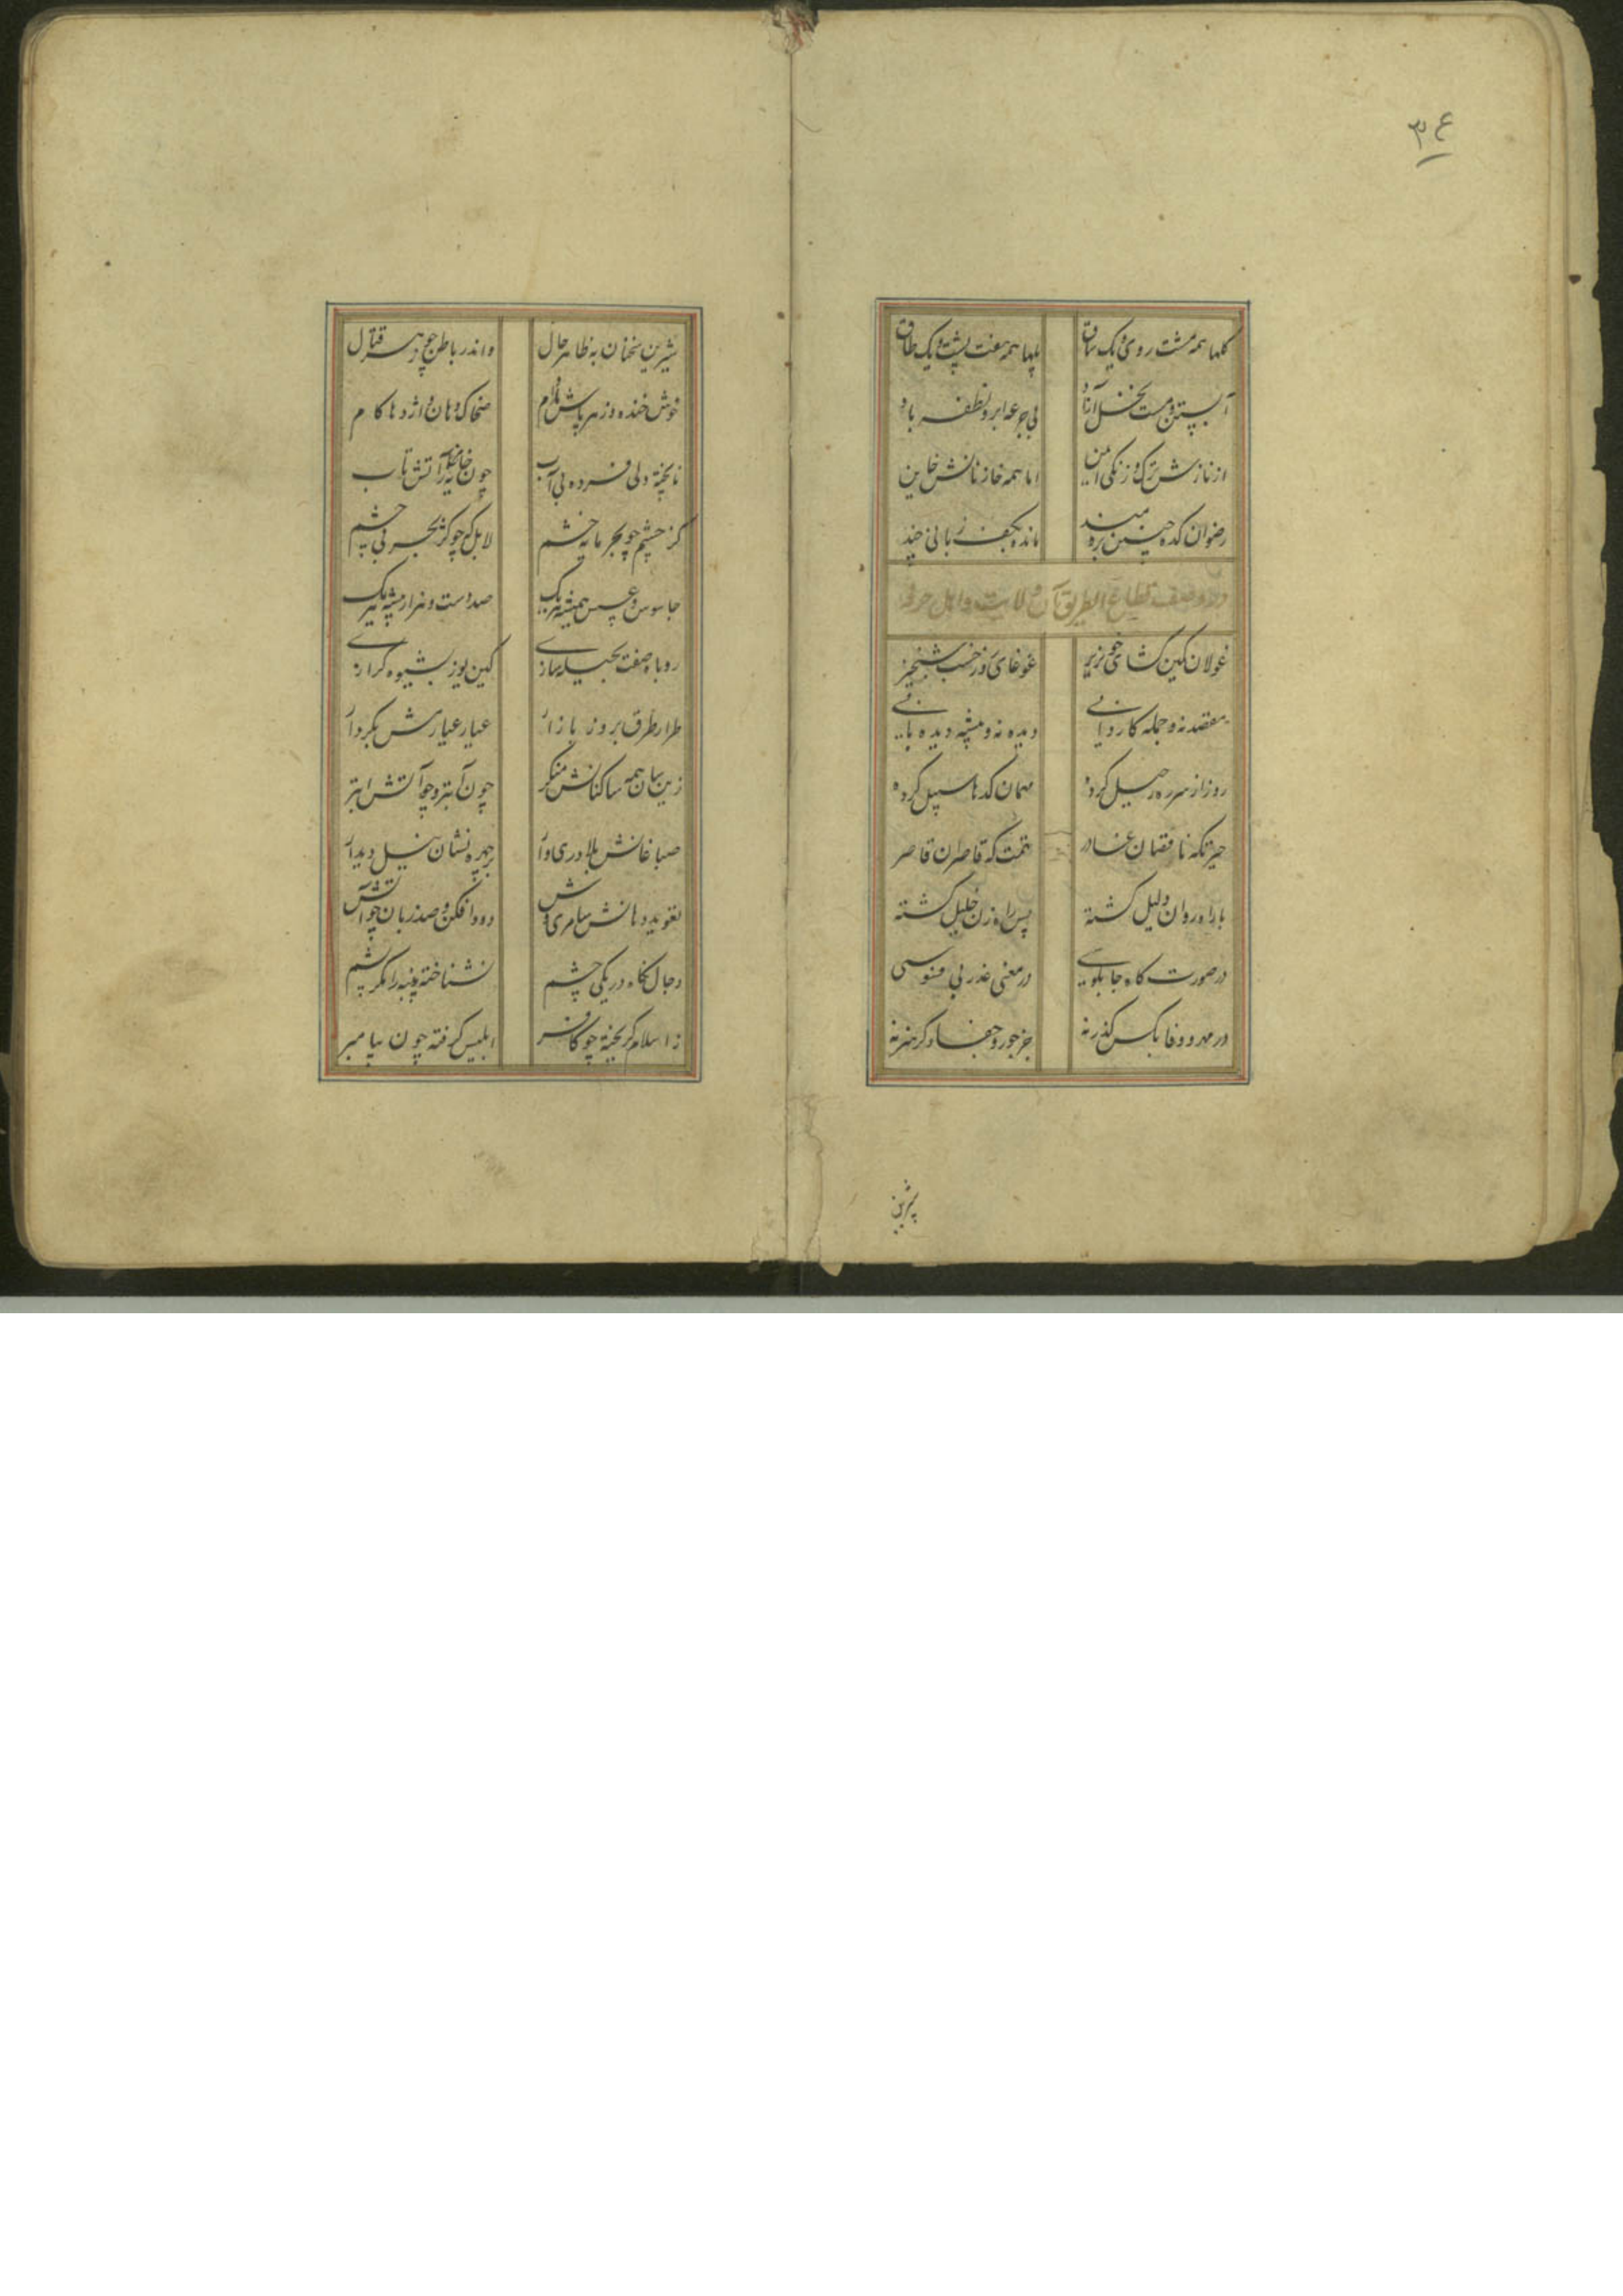 ۳۴
گلها همه هشت روی و یک ساق پلها همه هفت پشت و یک طاق
آبستن و مست نخل آزاد بی جرعه ابر و نطفه باد
از نازش ترک و زنگی ایمن اما همه خازنانش خاین
رضوان کده چنین بره مانده بکف زبانی چند
در وصف قطاع الطریق آن ولایت و اهل حرفه
غولان کمین گشای خونریز غوغای روز خسب شبخیز
مقصد نه و جمله کاروانی دیده نه و پیشه دیده بانی
روز از سر ره رحیل کرده مهمان کدها سبیل کرده
حیز نکه ناقصان غادر همت که قاصران قاصر
با راه روان دلیل گشته پس راه زن خلیل گشته
در صورت کاه جابلوسی در معنی غدر بی فسوسی
در مهر و وفا بکس گذر نه جز جور و جفا دگر هنر نه
شیرین
شیرین سخنان به ظاهر حال و اندر باطن چو زهر قتال
خوش خنده و زهر پاش مادام ضحاک دهان و اژدها کام
نا پخته دلی فسرده بی آب چون خایه بر آتش تاب
کژ چشم چو بحر مایه خشم لابل که چو کژ بحر بی چشم
جاسوس و عسس همیشه یک صد دست و هزار پیشه یک
روباه صفت بحیله سازی کین یوز بشیوه گرازی
طرار طرق بروز بازار عیار عیارش بکردار
زین سان همه ساکنانش منکر چون آب تر و چو آتش ابتر
صباغانش بلادری وار بر چهره نشان نیل دیدار
تعوید دهانش سامری وش دود افکن و صد زبان چو آتش
دجال نگاه در یکی چشم نشناخته پنبه را مگر پشم
ز اسلام گریخته چو کافر ابلیس گرفته چون پیامبر